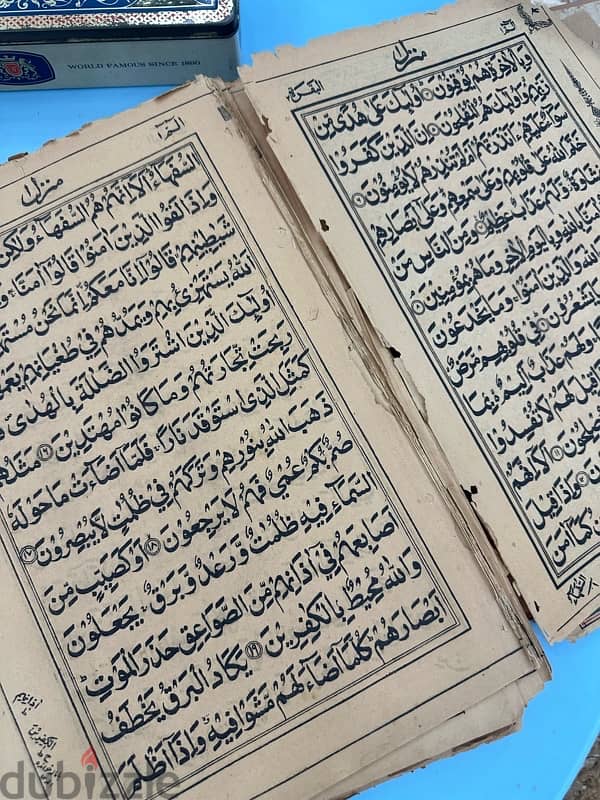 منزل
البقرة
وبالاخرة هم يوقنون اولئك على هدى من
ربهم واولئك هم المفلحون ان الذين كفروا
سواء عليهم ءانذرتهم ام لم تنذرهم لا يؤمنون
ختم الله على قلوبهم وعلى سمعهم وعلى ابصارهم
غشاوة ولهم عذاب عظيم ومن الناس من
امنا بالله وباليوم الاخر وما هم بمؤمنين
الله والذين امنوا وما يخدعون
يشعرون في قلوبهم مرض
ولهم عذاب اليم بما
قيل لهم لا تفسدوا
مصلحون الا انهم
واذا قيل
كما امن
السفهاء
منزل
السفهاء الا انهم هم السفهاء ولكن
واذا لقوا الذين امنوا قالوا امنا و
شيطينهم قالوا انا معكم انما نحن مستهز
الله يستهزئ بهم ويمدهم في طغيانهم يعم
اولئك الذين اشتروا الضللة بالهدى
ربحت تجارتهم وما كانوا مهتدين ۱۶ مثلهم
كمثل الذى استوقد نارا فلما اضاءت ما حوله
ذهب الله بنورهم وتركهم في ظلمت لا يبصرون ۱۷
صم بكم عمي فهم لا يرجعون ۱۸ او كصيب من
السماء فيه ظلمت ورعد وبرق يجعلون
اصابعهم في اذانهم من الصواعق حذر الموت
والله محيط بالكفرين ۱۹ يكاد البرق يخطف
ابصارهم كلما اضاء لهم مشوا فيه واذا اظلم
WORLD FAMOUS SINCE 1860
dubizzle